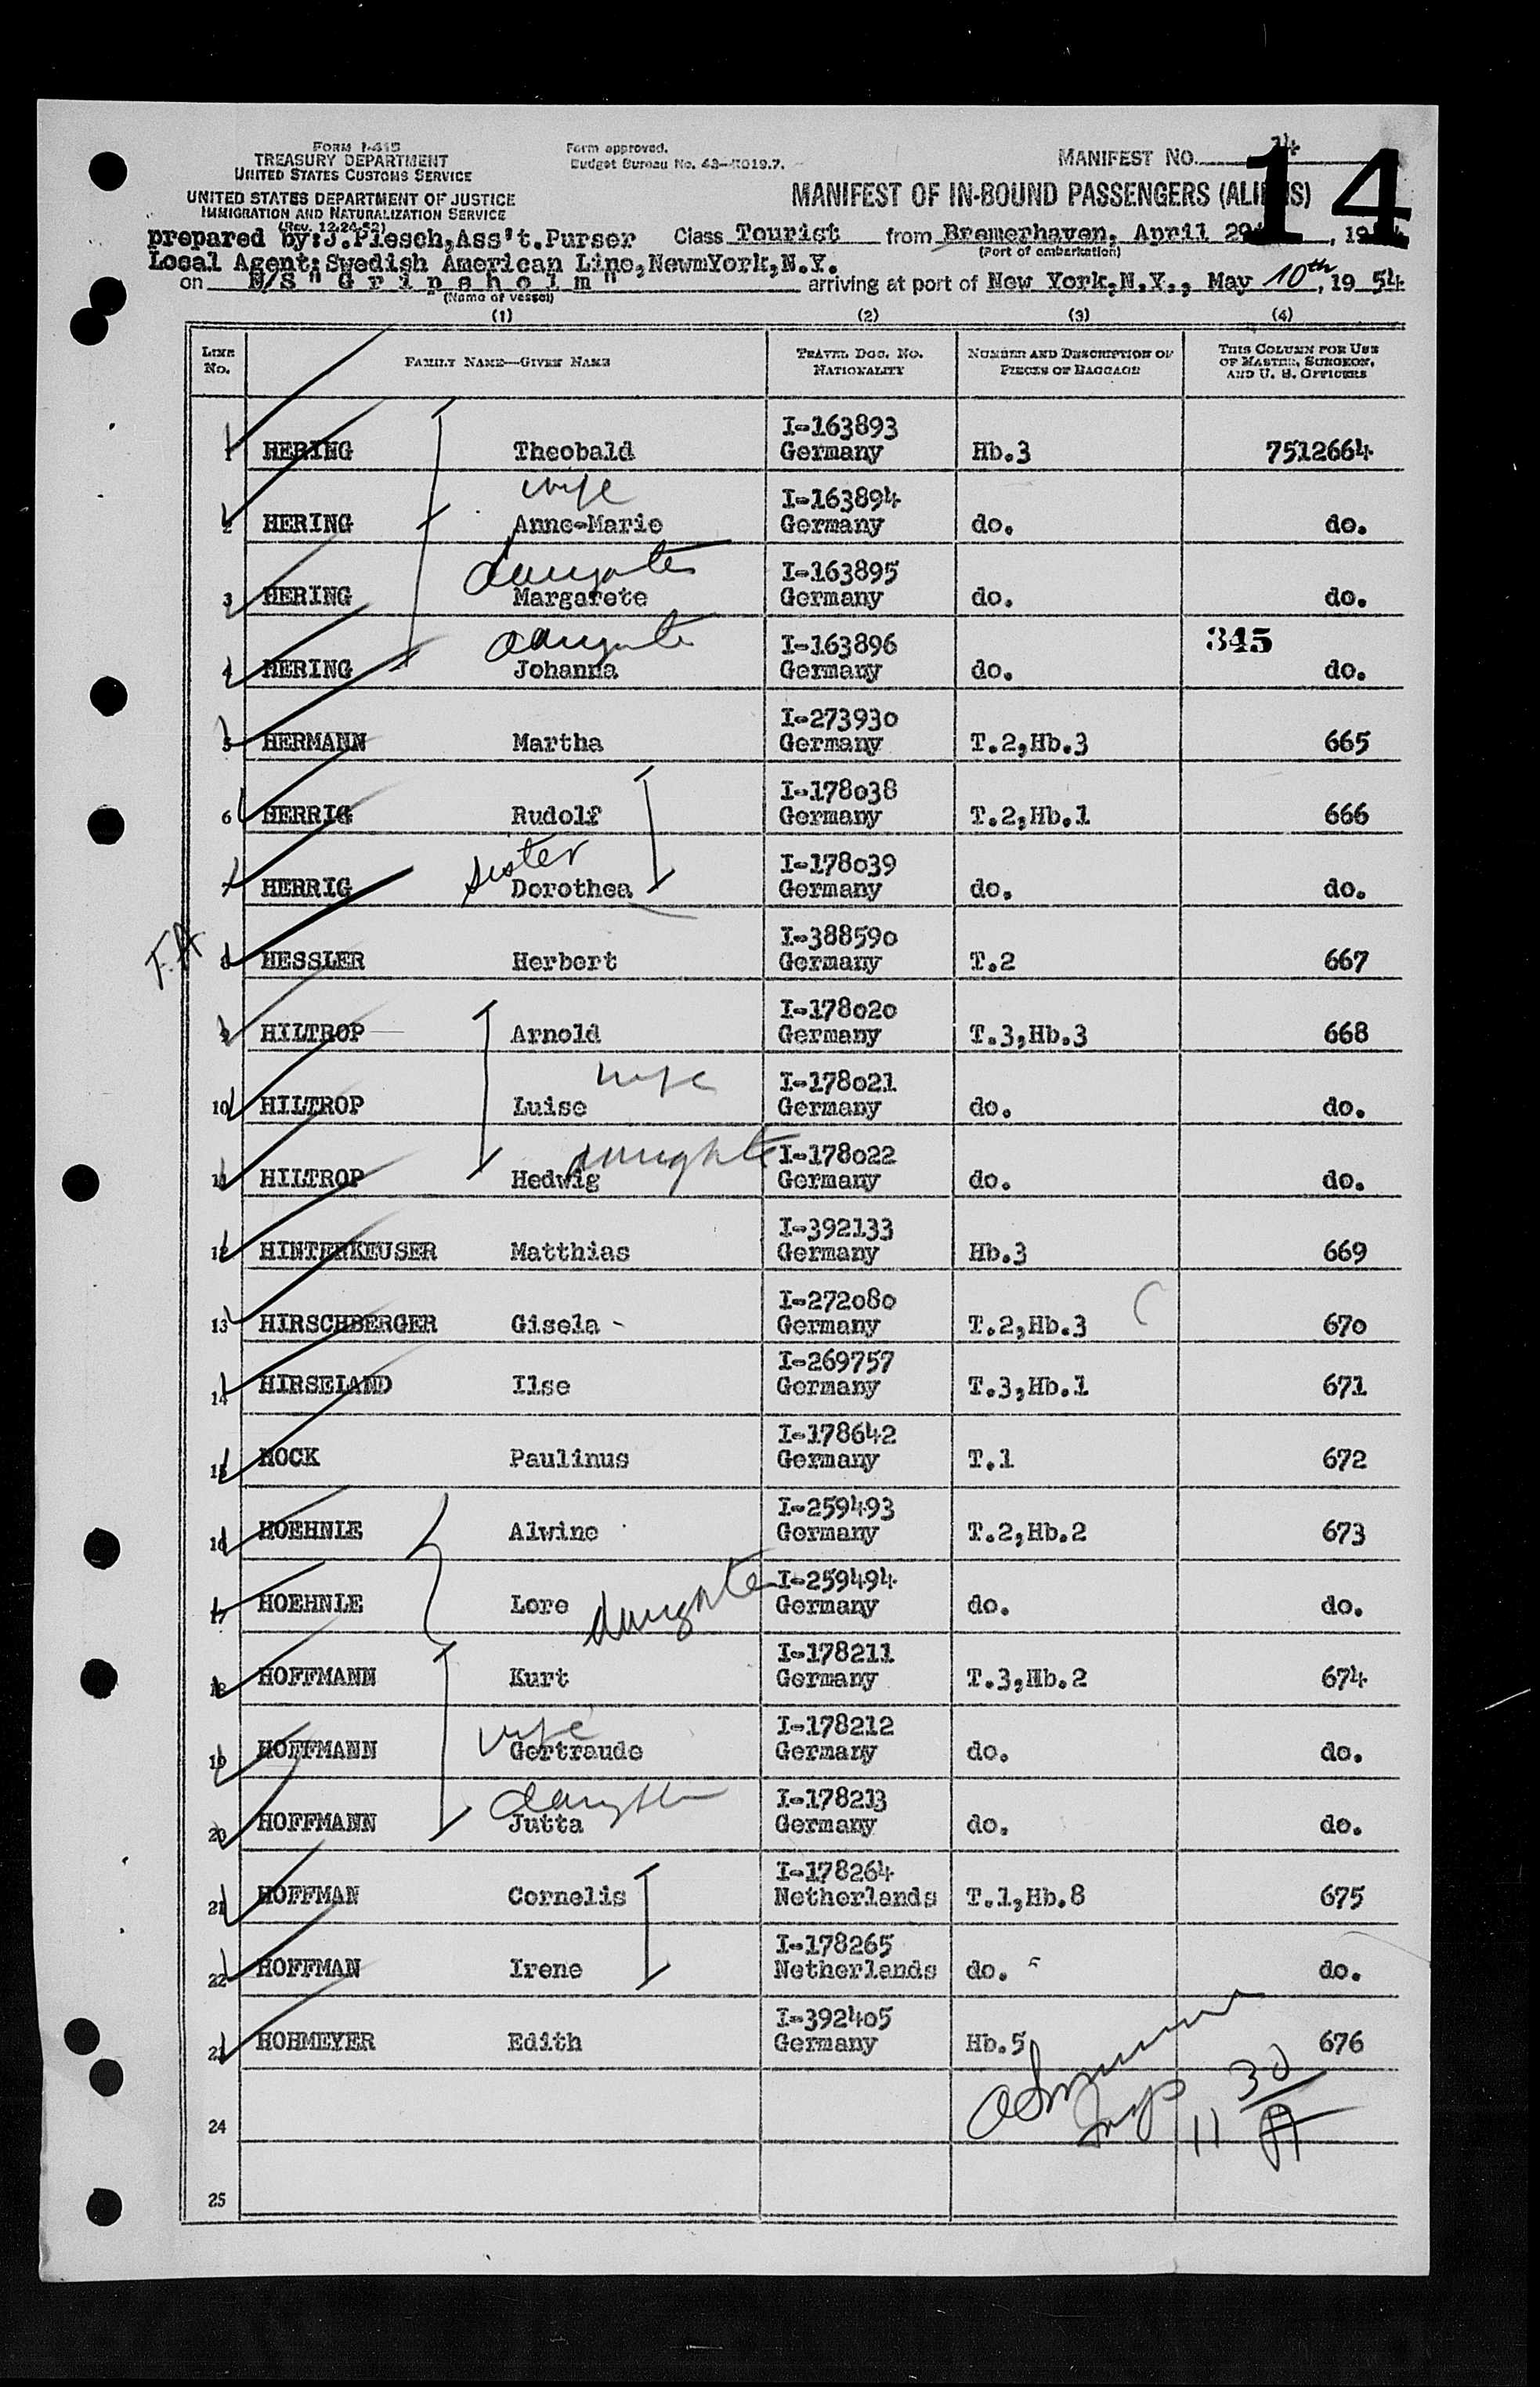 FORM I-415
TREASURY DEPARTMENT
UNITED STATES CUSTOMS SERVICE
Form approved.
Budget Bureau No. 43-R019.7.
MANIFEST NO. 14
14
UNITED STATES DEPARTMENT OF JUSTICE
IMMIGRATION AND NATURALIZATION SERVICE
(Rev. 12-24-52)
MANIFEST OF IN-BOUND PASSENGERS (ALIENS)
prepared by:J.Plesch,Ass't.Purser Class Tourist from Bremerhaven, April 29, 19
(Port of embarkation)
Local Agent:Swedish American Line,NewmYork,N.Y.
on M/S "G r i p s h o l m" arriving at port of New York,N.Y., May 10th, 19 54
(Name of vessel)
(1) (2) (3) (4)
LINE No. FAMILY NAME—GIVEN NAME TRAVEL DOC. NO. NATIONALITY NUMBER AND DESCRIPTION OF PIECES OF BAGGAGE THIS COLUMN FOR USE OF MASTER, SURGEON, AND U. S. OFFICERS
I-163893
1 HERING Theobald Germany Hb.3 7512664
wife I-163894
2 HERING Anne-Marie Germany do. do.
daughter I-163895
3 HERING Margarete Germany do. do.
daughter I-163896 345
4 HERING Johanna Germany do. do.
I-273930
5 HERMANN Martha Germany T.2,Hb.3 665
I-178038
6 HERRIG Rudolf Germany T.2,Hb.1 666
sister I-178039
7 HERRIG Dorothea Germany do. do.
F.A I-388590
8 HESSLER Herbert Germany T.2 667
I-178020
9 HILTROP Arnold Germany T.3,Hb.3 668
wife I-178021
10 HILTROP Luise Germany do. do.
daughter I-178022
11 HILTROP Hedwig Germany do. do.
I-392133
12 HINTERKEUSER Matthias Germany Hb.3 669
I-272080
13 HIRSCHBERGER Gisela Germany T.2,Hb.3 670
I-269757
14 HIRSELAND Ilse Germany T.3,Hb.1 671
I-178642
15 HOCK Paulinus Germany T.1 672
I-259493
16 HOEHNLE Alwine Germany T.2,Hb.2 673
daughter I-259494
17 HOEHNLE Lore Germany do. do.
I-178211
18 HOFFMANN Kurt Germany T.3,Hb.2 674
wife I-178212
19 HOFFMANN Gertraude Germany do. do.
daughter I-178213
20 HOFFMANN Jutta Germany do. do.
I-178264
21 HOFFMAN Cornelis Netherlands T.1,Hb.8 675
I-178265
22 HOFFMAN Irene Netherlands do. do.
I-392405
23 HOHMEYER Edith Germany Hb.5 676
24 Insp 11 30 A
25